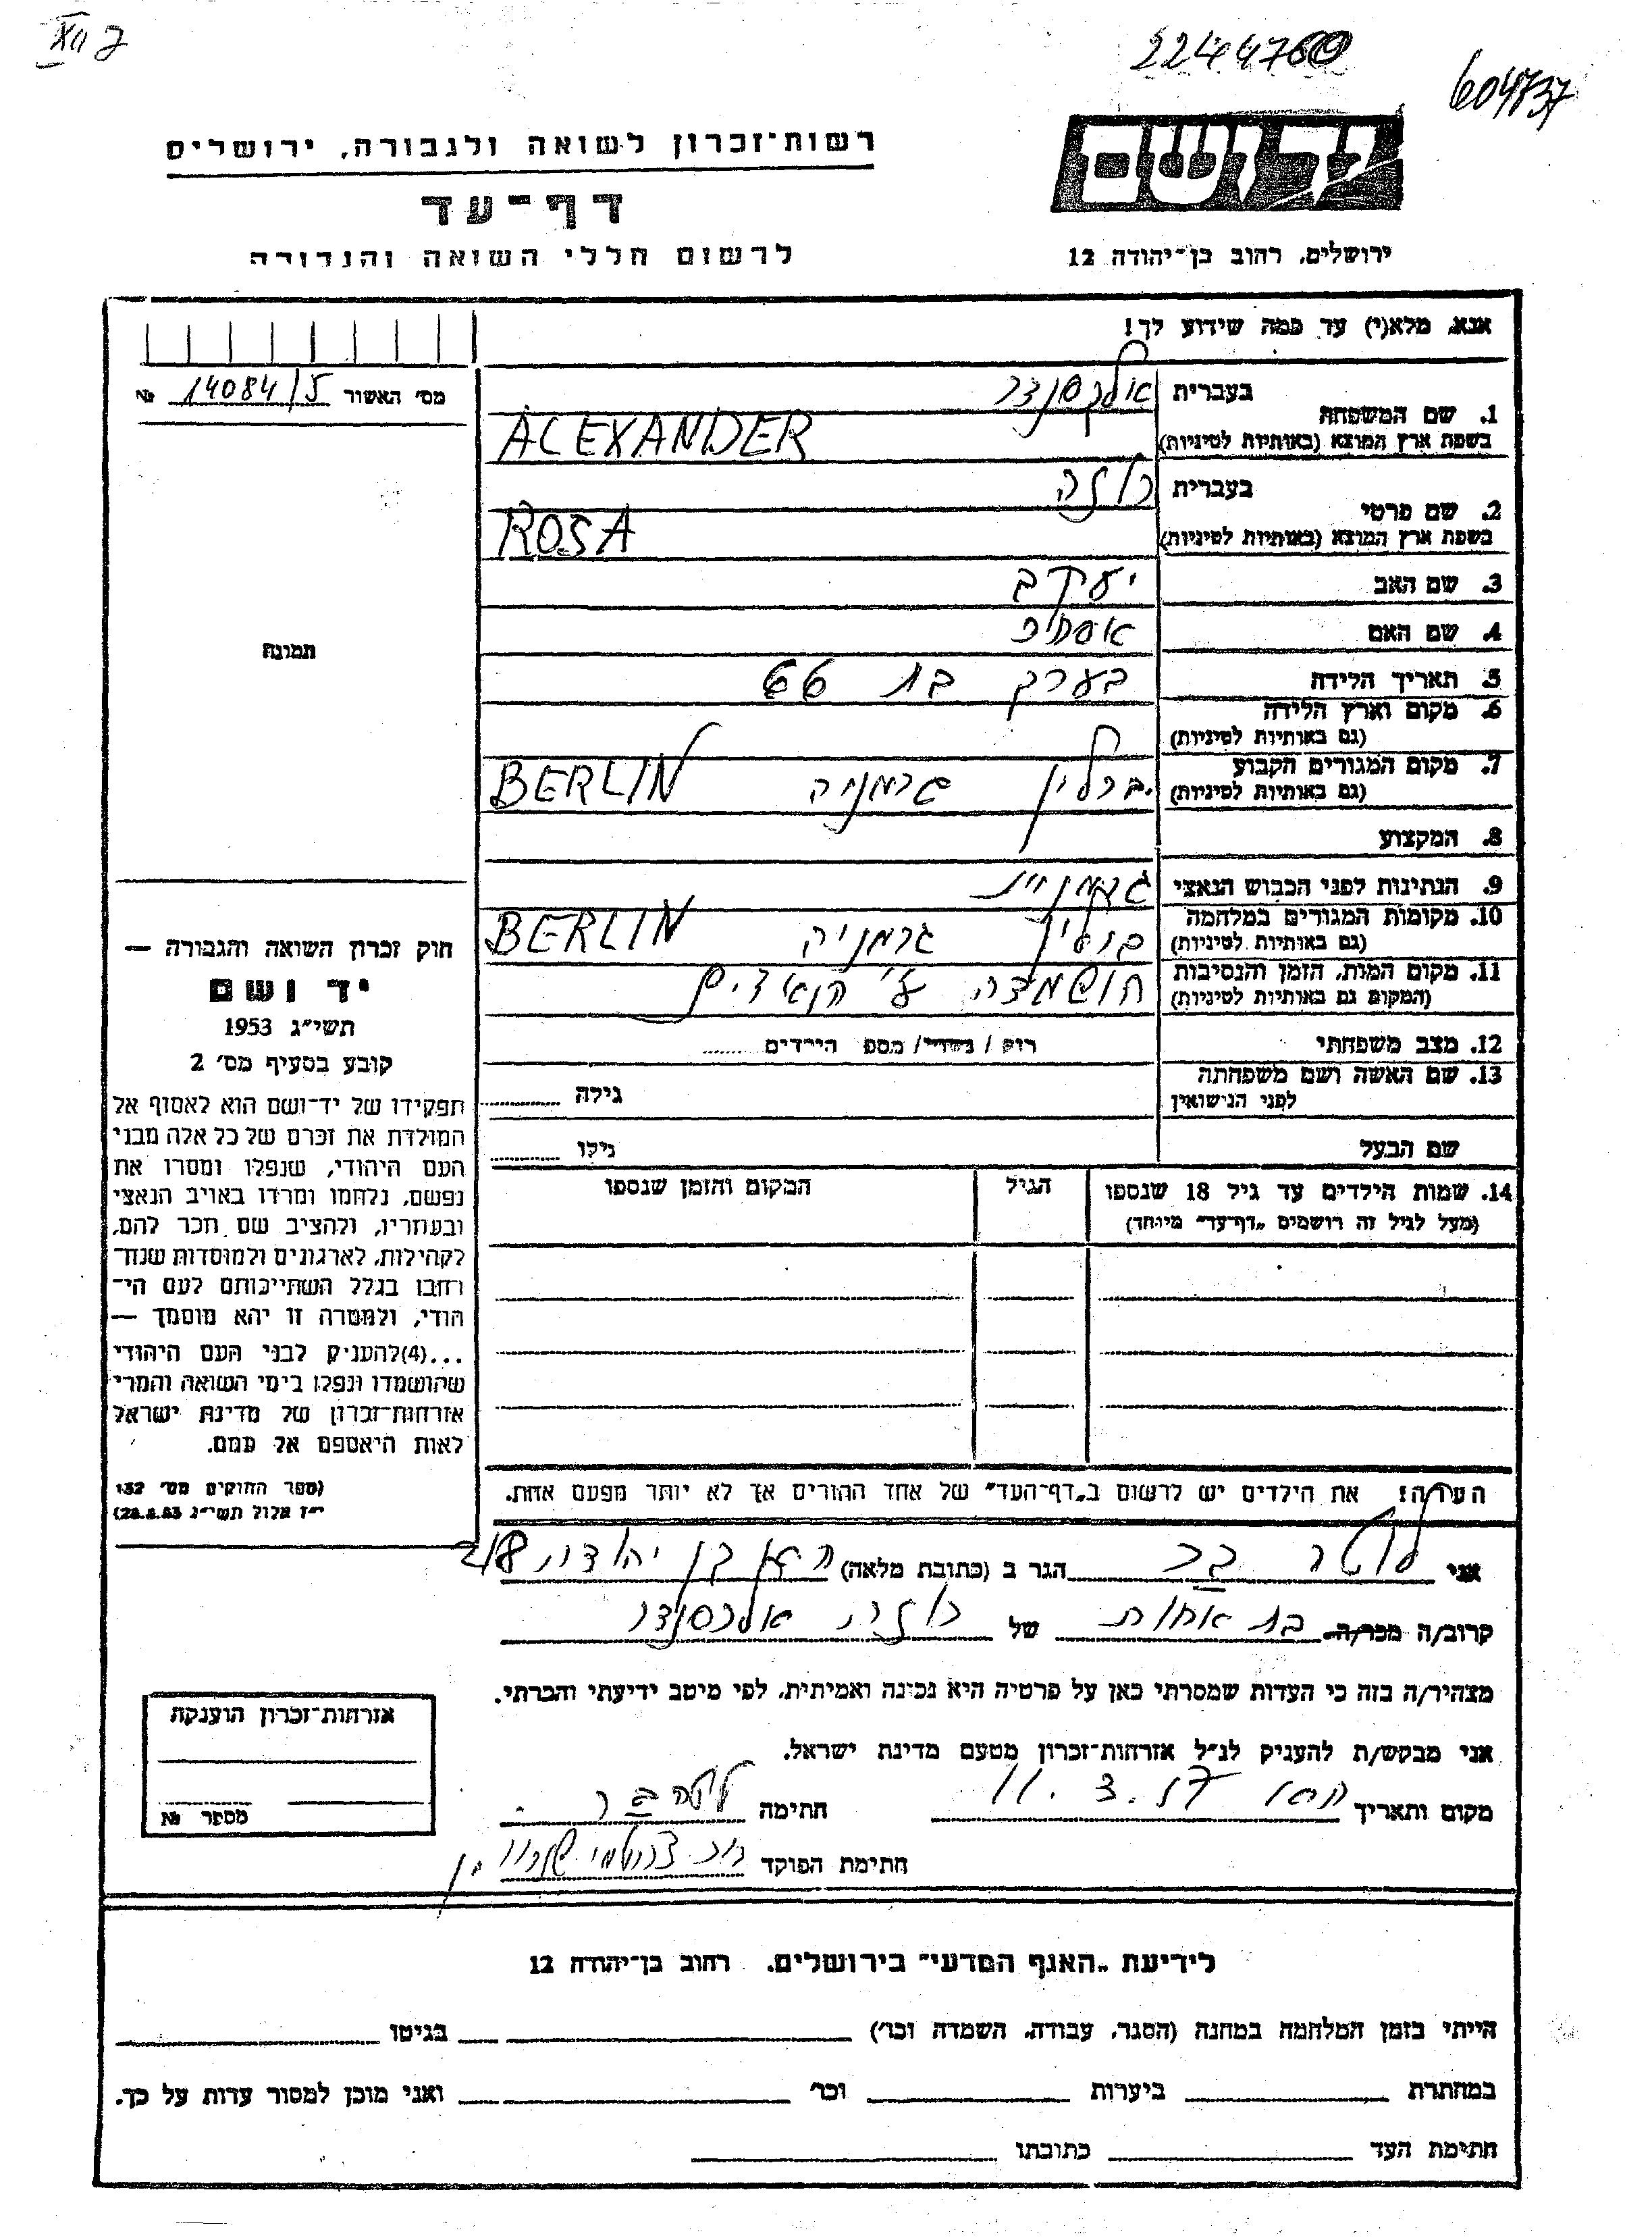 2244760
604737
יד ושם
רשות־זכרון לשואה ולגבורה, ירושלים
דף־עד
לרשום חללי השואה והגבורה
ירושלים, רחוב בן־יהודה 12
אנא, מלא(י) עד כמה שידוע לך!
מס' האשור 14084/5 №
1. שם המשפחה בעברית אלכסנדר
בשפת ארץ המוצא (באותיות לטיניות) ALEXANDER
2. שם פרטי בעברית רוזה
בשפת ארץ המוצא (באותיות לטיניות) ROSA
3. שם האב יעקב
4. שם האם אסתר
5. תאריך הלידה בערך בת 66
6. מקום וארץ הלידה
(גם באותיות לטיניות)
7. מקום המגורים הקבוע ברלין גרמניה BERLIN
(גם באותיות לטיניות)
8. המקצוע
9. הנתינות לפני הכבוש הנאצי גרמניה
10. מקומות המגורים במלחמה ברלין גרמניה BERLIN
(גם באותיות לטיניות)
11. מקום המות, הזמן והנסיבות הושמדה ע"י הנאצים
(המקום גם באותיות לטיניות)
12. מצב משפחתי רוק / נשוי / מספ הילדים
13. שם האשה ושם משפחתה גילה
לפני הנישואין
שם הבעל גילו
14. שמות הילדים עד גיל 18 שנספו הגיל המקום והזמן שנספו
(מעל לגיל זה רושמים „דף־עד" מיוחד)
תמונה
חוק זכרון השואה והגבורה —
יד ושם
תשי"ג 1953
קובע בסעיף מס' 2
תפקידו של יד־ושם הוא לאסוף אל
המולדת את זכרם של כל אלה מבני
העם היהודי, שנפלו ומסרו את
נפשם, נלחמו ומרדו באויב הנאצי
ובעוזריו, ולהציב שם וזכר להם,
לקהילות, לארגונים ולמוסדות שנח־
רבו בגלל השתייכותם לעם הי־
הודי, ולמטרה זו יהא מוסמך —
...(4)להעניק לבני העם היהודי
שהושמדו ונפלו בימי השואה והמרי
אזרחות־זכרון של מדינת ישראל
לאות היאספם אל עמם.
(ספר החוקים מס' 132
י"ז אלול תשי"ג 28.8.53)
הערה! את הילדים יש לרשום ב„דף־העד" של אחד ההורים אך לא יותר מפעם אחת.
אני לוטה בר הגר ב (כתובת מלאה) בן יהודה
קרוב/ה מכר/ה בת אחות של רוזה אלכסנדר
מצהיר/ה בזה כי העדות שמסרתי כאן על פרטיה היא נכונה ואמיתית, לפי מיטב ידיעתי והכרתי.
אני מבקש/ת להעניק לנ"ל אזרחות־זכרון מטעם מדינת ישראל.
מקום ותאריך 11.3.57 חתימה
חתימת הפוקד
אזרחות־זכרון הוענקה
מספר №
לידיעת „האגף המדעי" בירושלים, רחוב בן־יהודה 12
הייתי בזמן המלחמה במחנה (הסגר, עבודה, השמדה וכו') בגיטו
במחתרת ביערות וכו' ואני מוכן למסור עדות על כך.
חתימת העד כתובתו